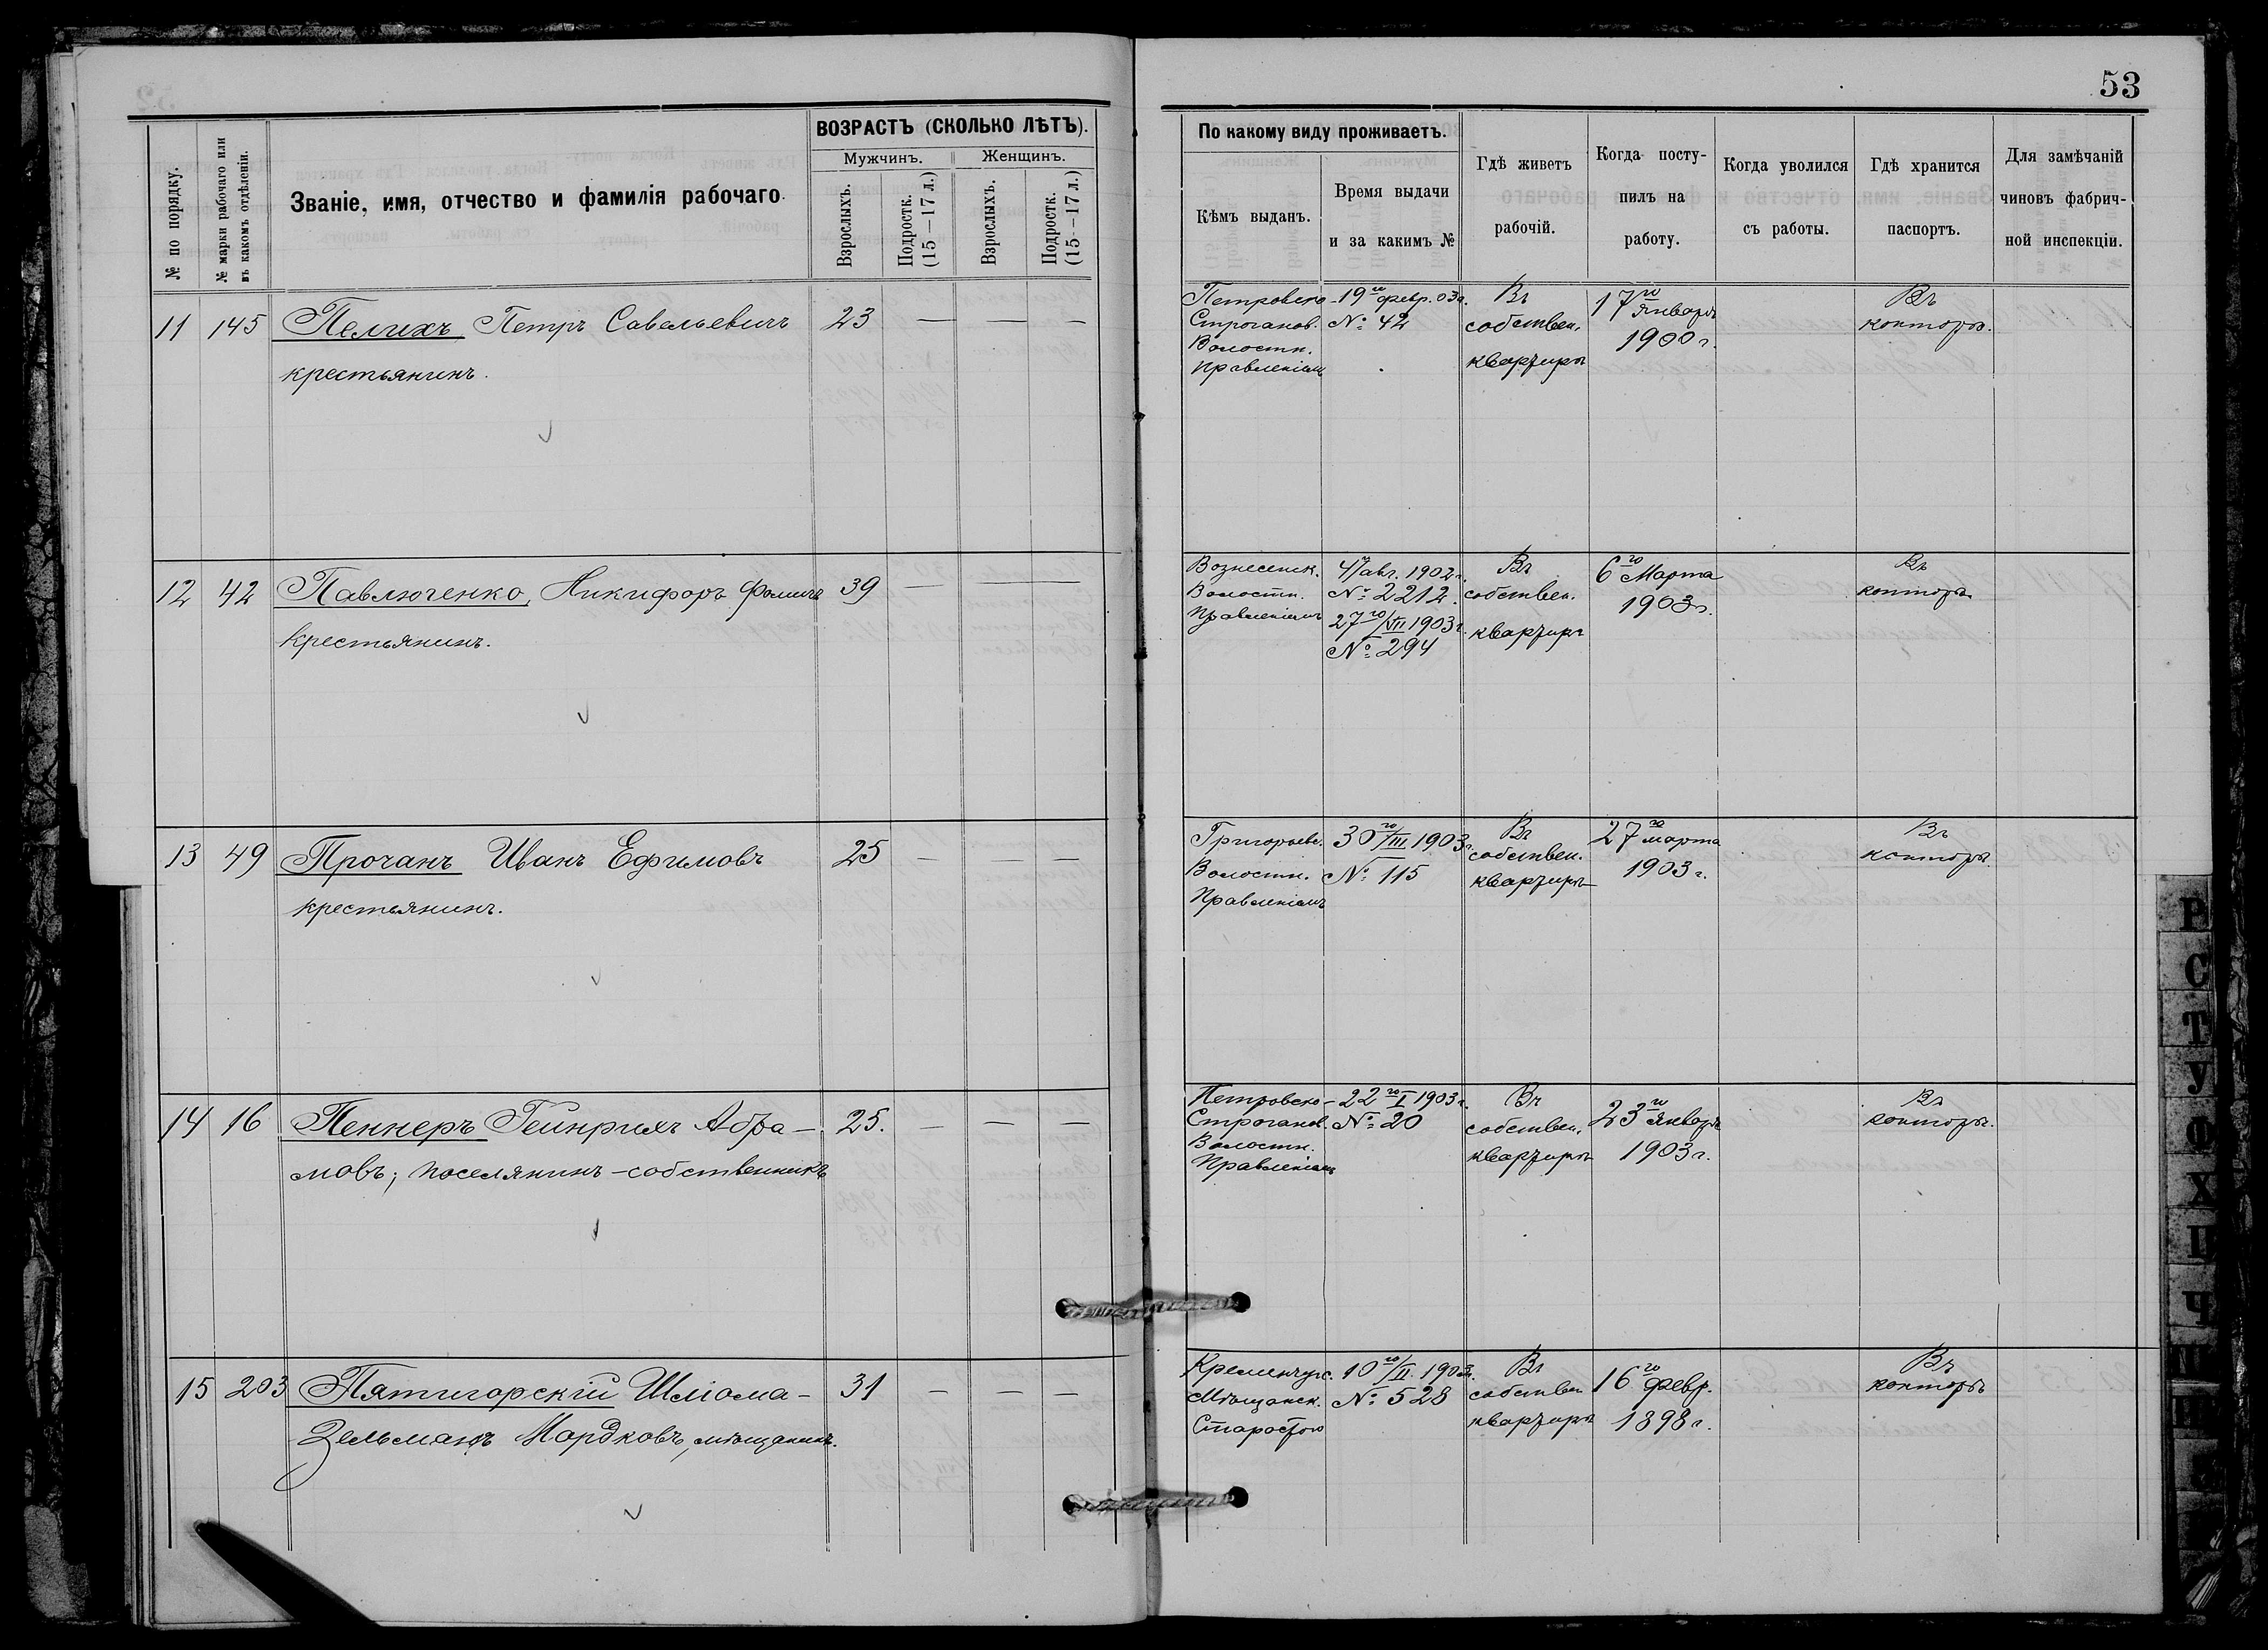 53
ВОЗРАСТЪ (СКОЛЬКО ЛѢТЪ).
Мужчинъ.
Женщинъ.
№ по порядку.
№ марки рабочаго или
въ какомъ отдѣленіи.
Званіе, имя, отчество и фамилія рабочаго.
Взрослыхъ.
Подростк.
(15—17 л.)
Взрослыхъ.
Подростк.
(15—17 л.)
По какому виду проживаетъ.
Кѣмъ выданъ.
Время выдачи
и за какимъ №
Гдѣ живетъ
рабочій.
Когда посту-
пилъ на
работу.
Когда уволился
съ работы.
Гдѣ хранится
паспортъ.
Для замѣчаній
чиновъ фабрич-
ной инспекціи.
11 145 Пелихъ Петръ Савельевичъ 23 — — —
крестьянинъ.
Петровско-
Строганов.
Волостн.
Правленіемъ
19го февр. 03г.
№ 42
Въ
собствен.
квартирѣ
17го
Января
1900 г.
Въ
конторѣ.
12 42 Павлюченко, Никифоръ Фомичъ 39 — — —
крестьянинъ.
Вознесенск.
Волостн.
Правленіемъ
4/авг. 1902 г.
№ 2212.
27го/VII 1903 г.
№ 294
Въ
собствен.
квартирѣ
6го Марта
1903 г.
Въ
конторѣ
13 49 Прочанъ Иванъ Ефимовъ 25 — — —
крестьянинъ.
Григорьевс.
Волостн.
Правленіемъ
30го/III 1903 г.
№ 115
Въ
собствен.
квартирѣ
27го
марта
1903 г.
Въ
конторѣ
14 16 Пеннеръ Гейнрихъ Абра- 25. — — —
мовъ; поселянинъ-собственникъ
Петровско-
Строганов.
Волостн.
Правленіемъ
22го I 1903 г.
№ 20
Въ
собствен.
квартирѣ
23го
Января
1903 г.
Въ
конторѣ.
15 203 Пятигорскій Шліома- 31 — — —
Зельманъ Мордковъ, мѣщанинъ.
Кременчугс.
Мѣщанск.
Старостою
10го/II 1903 г.
№ 528
Въ
собствен
квартирѣ
16го
февр.
1898 г.
Въ
конторѣ
Р
С
Т
У
Ф
Х
Ц
Ч